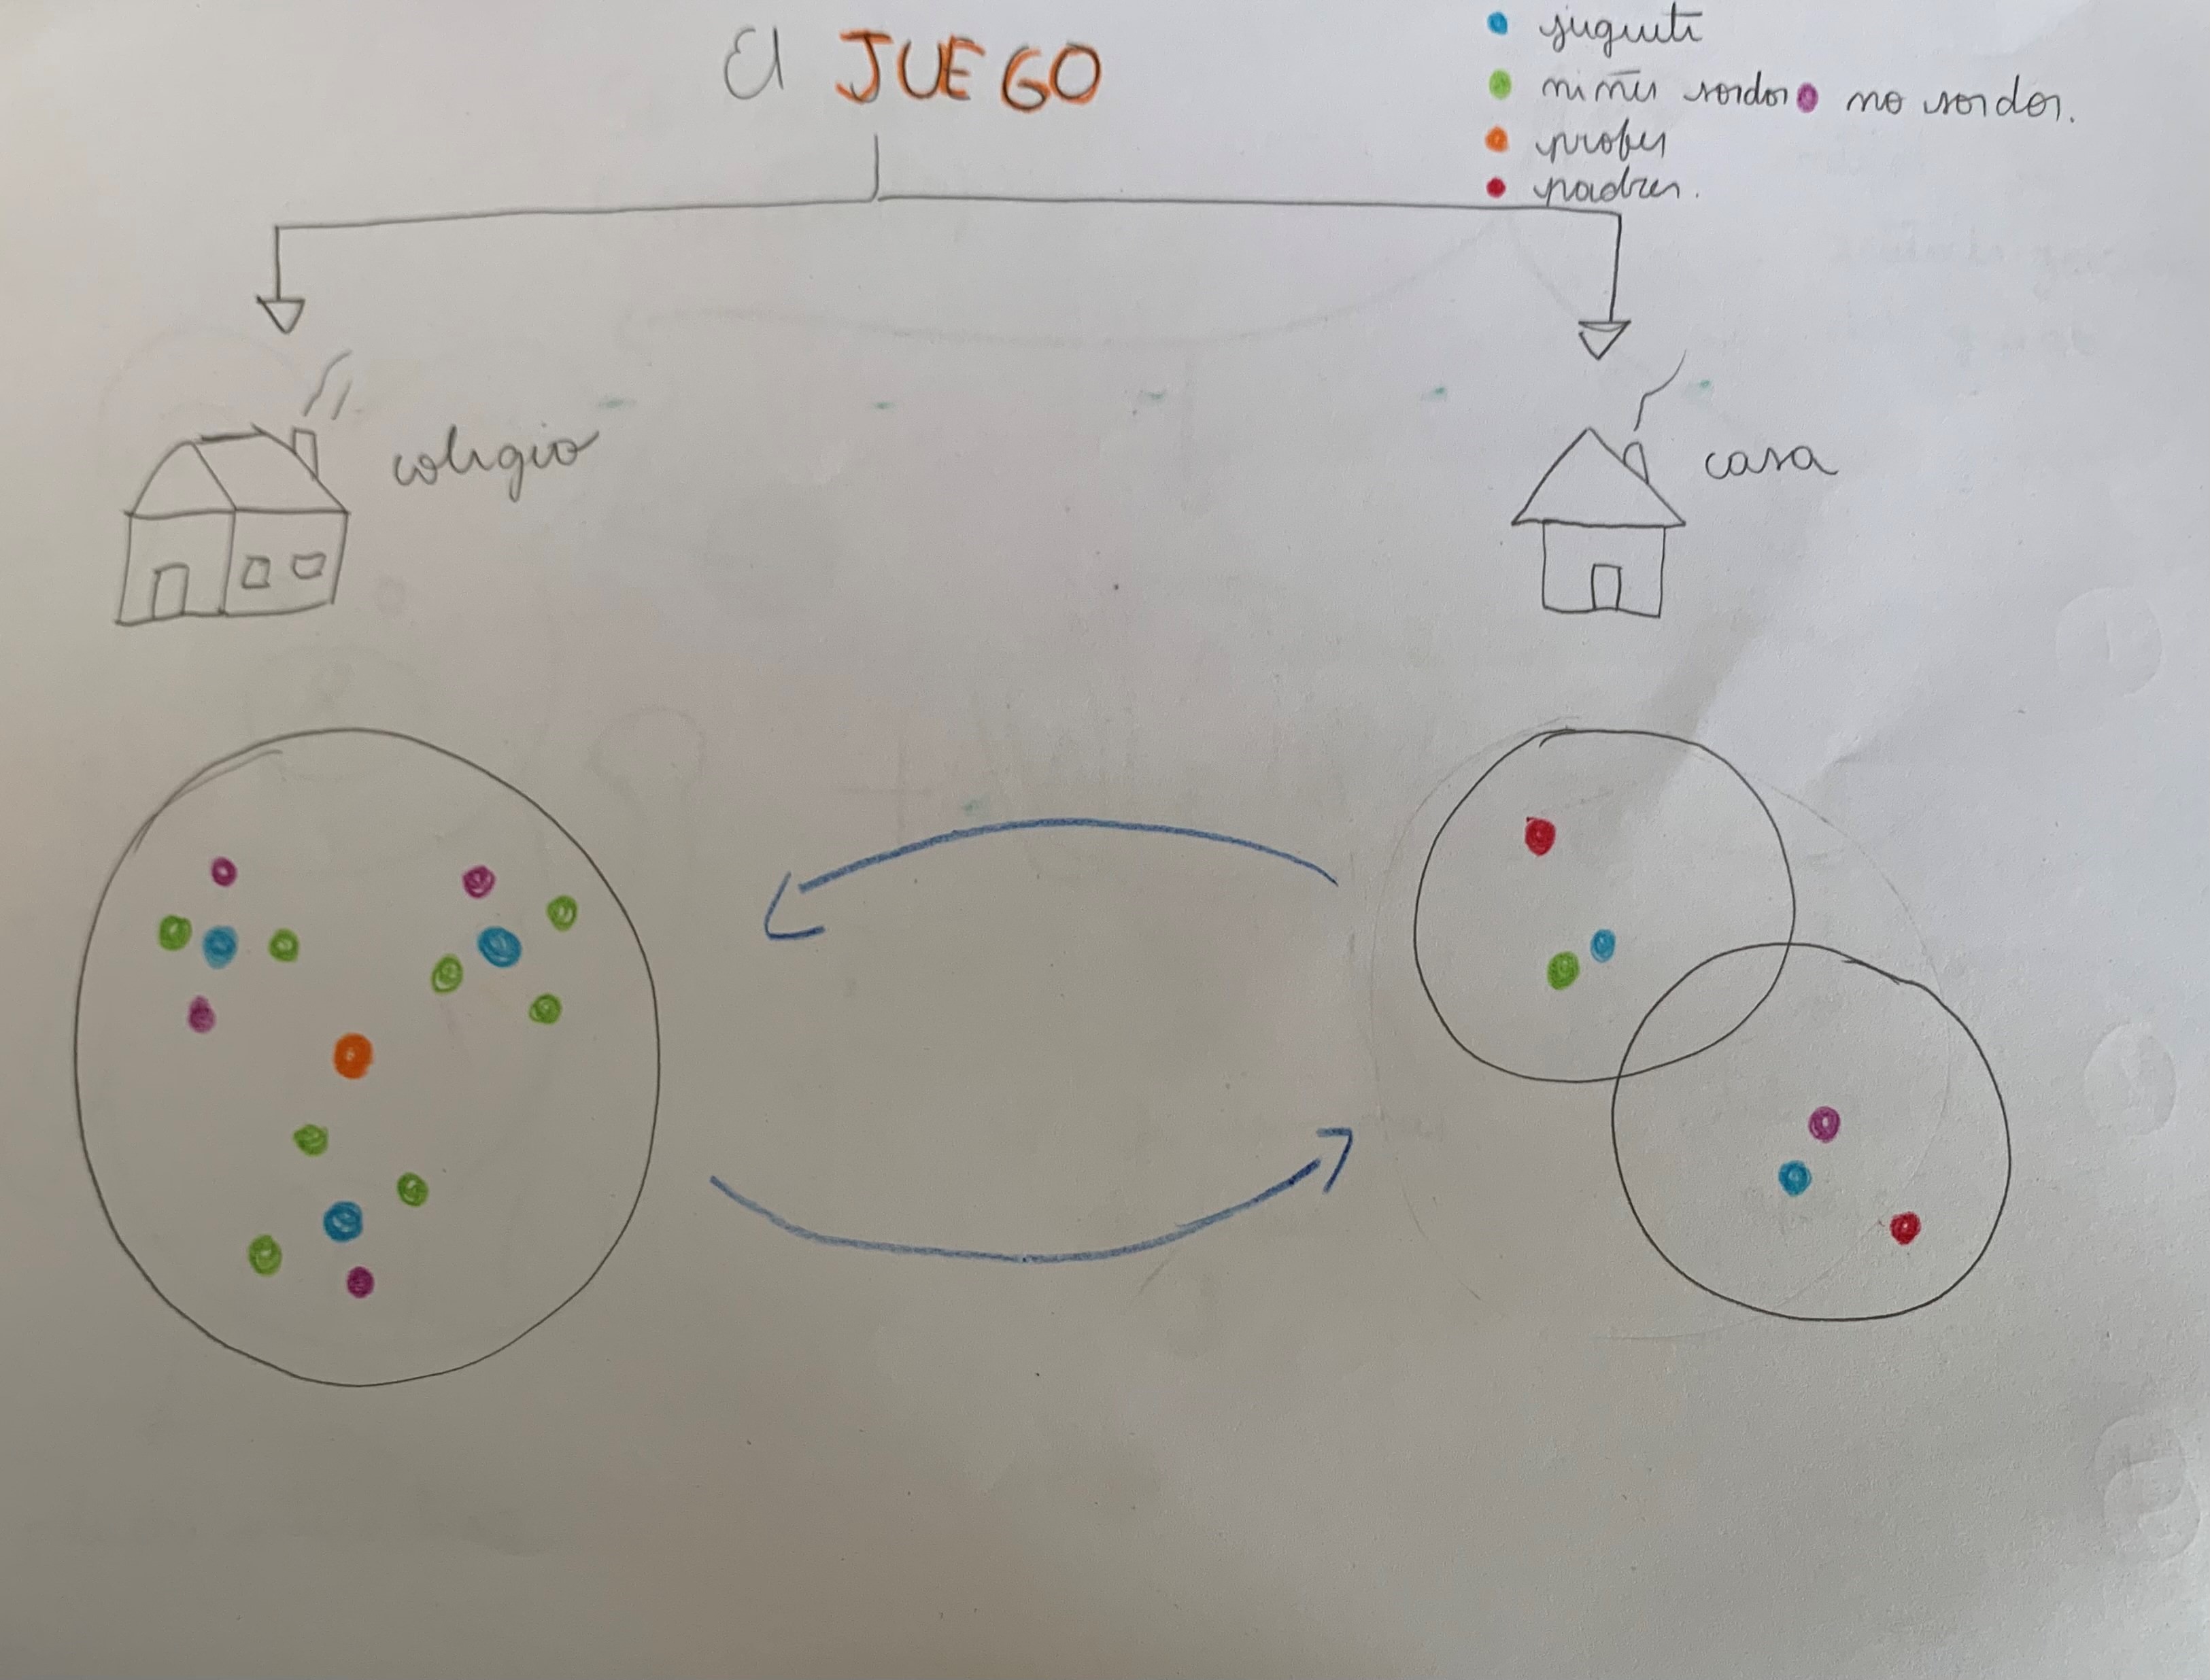 El JUEGO
juguete
niños sordos no sordos.
profes
padres.
colegio
casa